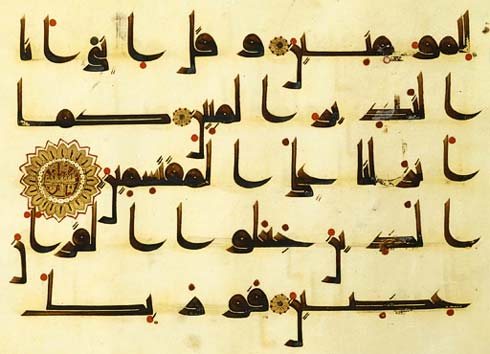 للمؤمنين وقل إني أنا
النذير المبين كما
أنزلنا على المقتسمين
الذين جعلوا القرآن
عضين فوربك